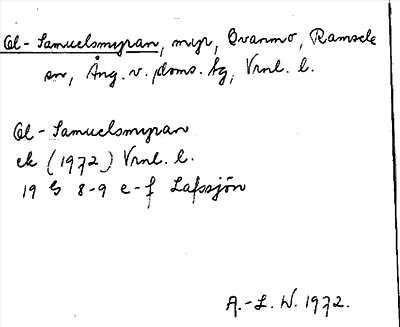 Ol-Samuelsmyran, myr, Ovanmo, Ramsele
sn, Ång. v. doms. bg, Vrnl. l.
Ol-Samuelsmyran
ek (1972) Vrnl. l.
19 G 8-9 e-f Lafssjön
A.-L. W. 1972.